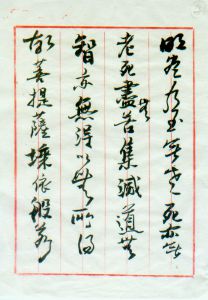 明盡乃至無老死亦無
老死盡無苦集滅道無
智亦無得以無所得
故菩提薩埵依般若